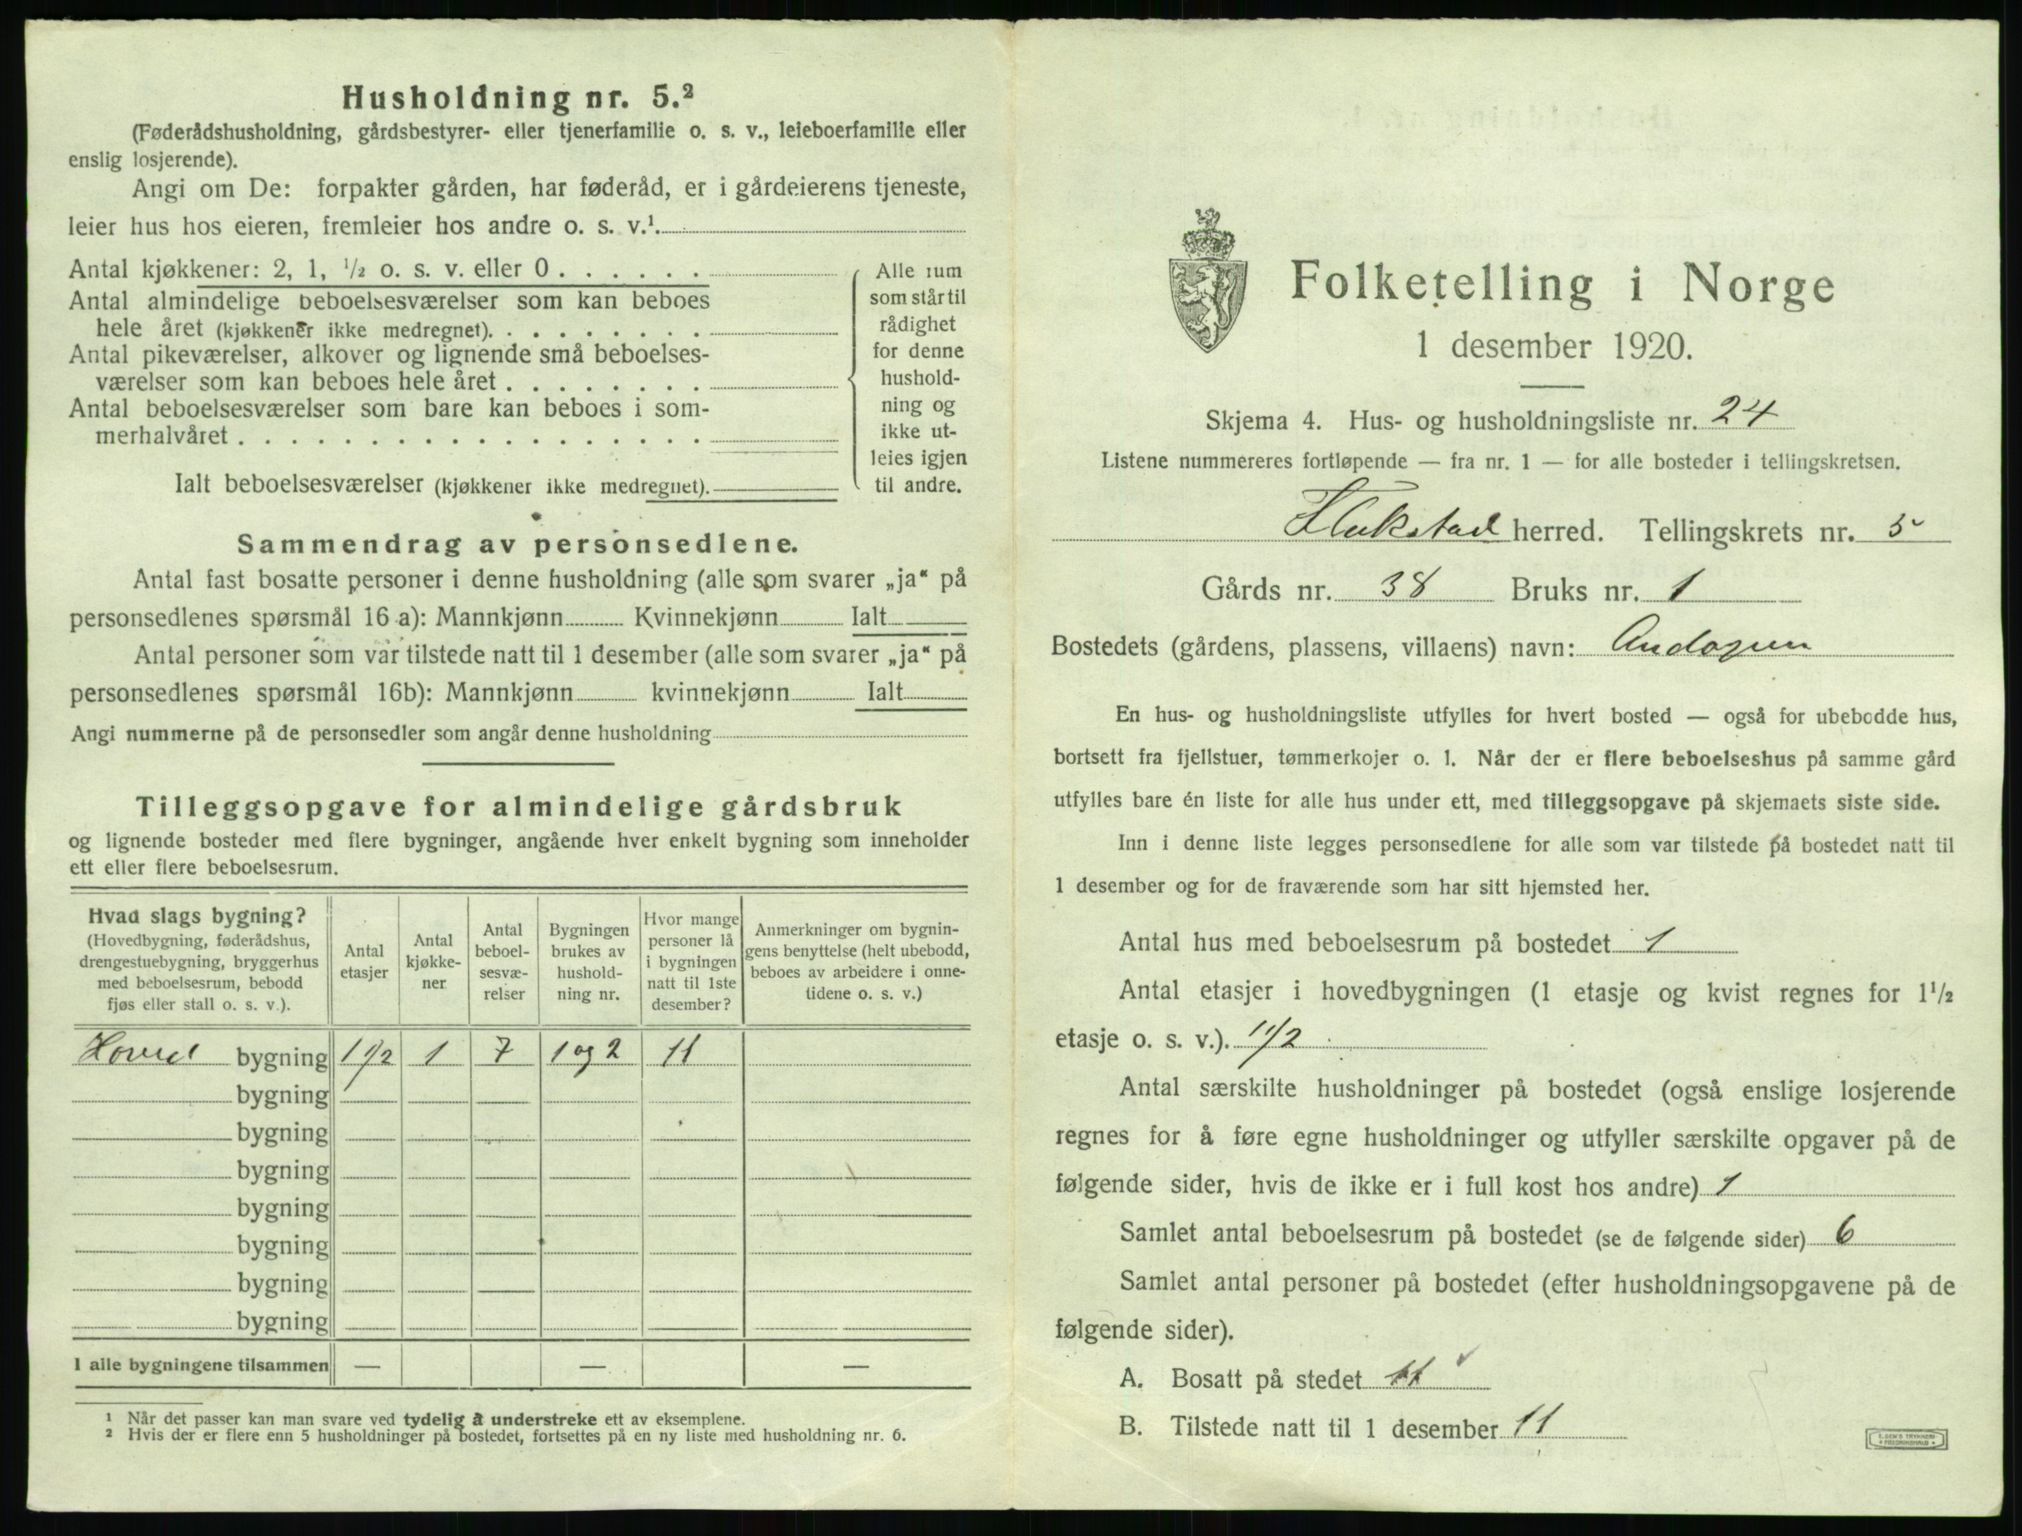 Husholdning nr. 5.²
(Føderådshusholdning, gårdsbestyrer- eller tjenerfamilie o. s. v., leieboerfamilie eller
enslig losjerende).
Angi om De: forpakter gården, har føderåd, er i gårdeierens tjeneste,
leier hus hos eieren, fremleier hos andre o. s. v.¹
Antal kjøkkener: 2, 1, ½ o. s. v. eller 0 . . . . . .
Antal almindelige beboelsesværelser som kan beboes
hele året (kjøkkener ikke medregnet). . . . . . . . .
Antal pikeværelser, alkover og lignende små beboelses-
værelser som kan beboes hele året . . . . . . . .
Antal beboelsesværelser som bare kan beboes i som-
merhalvåret . . . . . . . . . . . . . . . . . .
Alle rum
som står til
rådighet
for denne
hushold-
ning og
ikke ut-
leies igjen
til andre.
Ialt beboelsesværelser (kjøkkener ikke medregnet).
Sammendrag av personsedlene.
Antal fast bosatte personer i denne husholdning (alle som svarer „ja“ på
personsedlenes spørsmål 16 a): Mannkjønn Kvinnekjønn Ialt
Antal personer som var tilstede natt til 1 desember (alle som svarer „ja“ på
personsedlenes spørsmål 16b): Mannkjønn kvinnekjønn Ialt
Angi nummerne på de personsedler som angår denne husholdning
Tilleggsopgave for almindelige gårdsbruk
og lignende bosteder med flere bygninger, angående hver enkelt bygning som inneholder
ett eller flere beboelsesrum.
Hvad slags bygning?
(Hovedbygning, føderådshus,
drengestuebygning, bryggerhus
med beboelsesrum, bebodd
fjøs eller stall o. s. v.).
Antal
etasjer
Antal
kjøkke-
ner
Antal
beboel-
sesvæ-
relser
Bygningen
brukes av
hushold-
ning nr.
Hvor mange
personer lå
i bygningen
natt til 1ste
desember?
Anmerkninger om bygnin-
gens benyttelse (helt ubebodd,
beboes av arbeidere i onne-
tidene o. s. v.)
Hoved bygning 1 1/2 1 7 1 og 2 11
bygning
bygning
bygning
bygning
bygning
bygning
bygning
I alle bygningene tilsammen — — —
¹ Når det passer kan man svare ved tydelig å understreke ett av eksemplene.
² Hvis der er flere enn 5 husholdninger på bostedet, fortsettes på en ny liste med husholdning nr. 6.
Folketelling i Norge
1 desember 1920.
Skjema 4. Hus- og husholdningsliste nr. 24
Listene nummereres fortløpende — fra nr. 1 — for alle bosteder i tellingskretsen.
Flakstad herred. Tellingskrets nr. 5
Gårds nr. 38 Bruks nr. 1
Bostedets (gårdens, plassens, villaens) navn: Andopen
En hus- og husholdningsliste utfylles for hvert bosted — også for ubebodde hus,
bortsett fra fjellstuer, tømmerkojer o. l. Når der er flere beboelseshus på samme gård
utfylles bare én liste for alle hus under ett, med tilleggsopgave på skjemaets siste side.
Inn i denne liste legges personsedlene for alle som var tilstede på bostedet natt til
1 desember og for de fraværende som har sitt hjemsted her.
Antal hus med beboelsesrum på bostedet 1
Antal etasjer i hovedbygningen (1 etasje og kvist regnes for 1½
etasje o. s. v.). 1 1/2
Antal særskilte husholdninger på bostedet (også enslige losjerende
regnes for å føre egne husholdninger og utfyller særskilte opgaver på de
følgende sider, hvis de ikke er i full kost hos andre) 1
Samlet antal beboelsesrum på bostedet (se de følgende sider) 6
Samlet antal personer på bostedet (efter husholdningsopgavene på de
følgende sider).
A. Bosatt på stedet 11
B. Tilstede natt til 1 desember 11